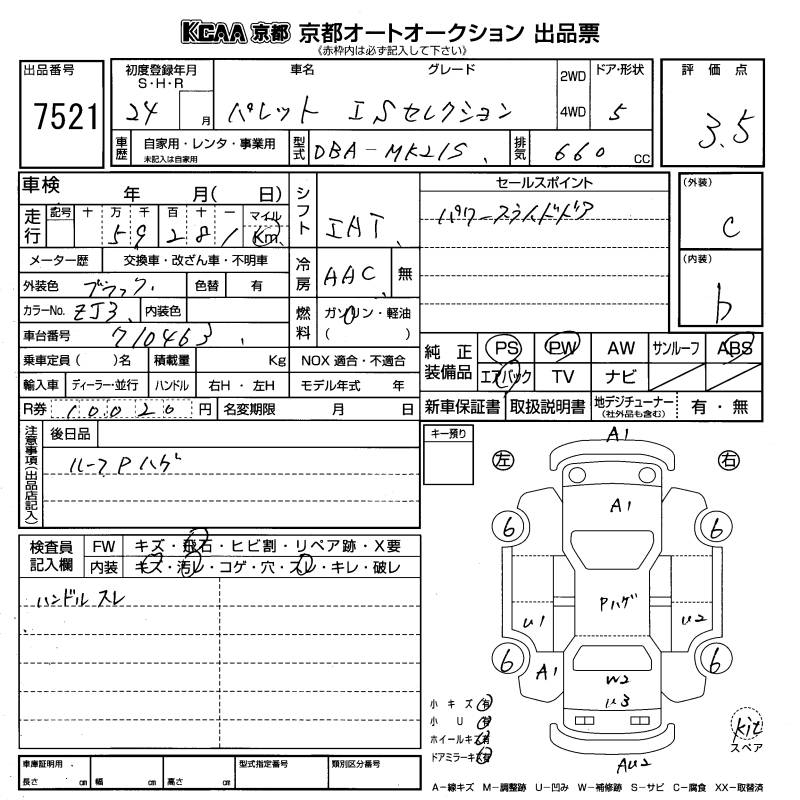 KCAA 京都 京都オートオークション 出品票
《赤枠内は必ず記入して下さい》
出品番号
7521
初度登録年月 S・H・R
24 月
車名 グレード
パレット ISセレクション
2WD
4WD
ドア・形状
5
評価点
3.5
車歴 自家用・レンタ・事業用
未記入は自家用
型式 DBA-MK21S
排気 660 CC
車検 年 月( 日)
走行 記号 十 万 千 百 十 一 マイル
5 9 2 8 1 Km
メーター歴 交換車・改ざん車・不明車
外装色 ブラック 色替 有
カラーNo. ZJ3 内装色
車台番号 710463
乗車定員( )名 積載量 Kg
輸入車 ディーラー・並行 ハンドル 右H・左H
R券 10020 円 名変期限 月 日
シフト IAT
冷房 AAC 無
燃料 ガソリン・軽油
( )
NOX 適合・不適合
モデル年式 年
セールスポイント
パワースライドドア
(外装)
C
(内装)
b
純正装備品 PS PW AW サンルーフ ABS
エアバック TV ナビ
新車保証書 取扱説明書 地デジチューナー
(社外品も含む) 有・無
注意事項(出品店記入)
後日品
ルーフPハゲ
キー預り
検査員記入欄
FW キズ・飛石・ヒビ割・リペア跡・X要
内装 キズ・汚レ・コゲ・穴・スレ・キレ・破レ
ハンドルスレ
左 右
A1
A1
6 6
Pハゲ
U1 U2
6 6
A1
W2
U3
AU2
小キズ 有
小U 有
ホイールキズ 有
ドアミラーキズ 有
kit
スペア
車庫証明用 長さ cm 幅 cm 高さ cm
型式指定番号
類別区分番号
A-線キズ M-調整跡 U-凹み W-補修跡 S-サビ C-腐食 XX-取替済